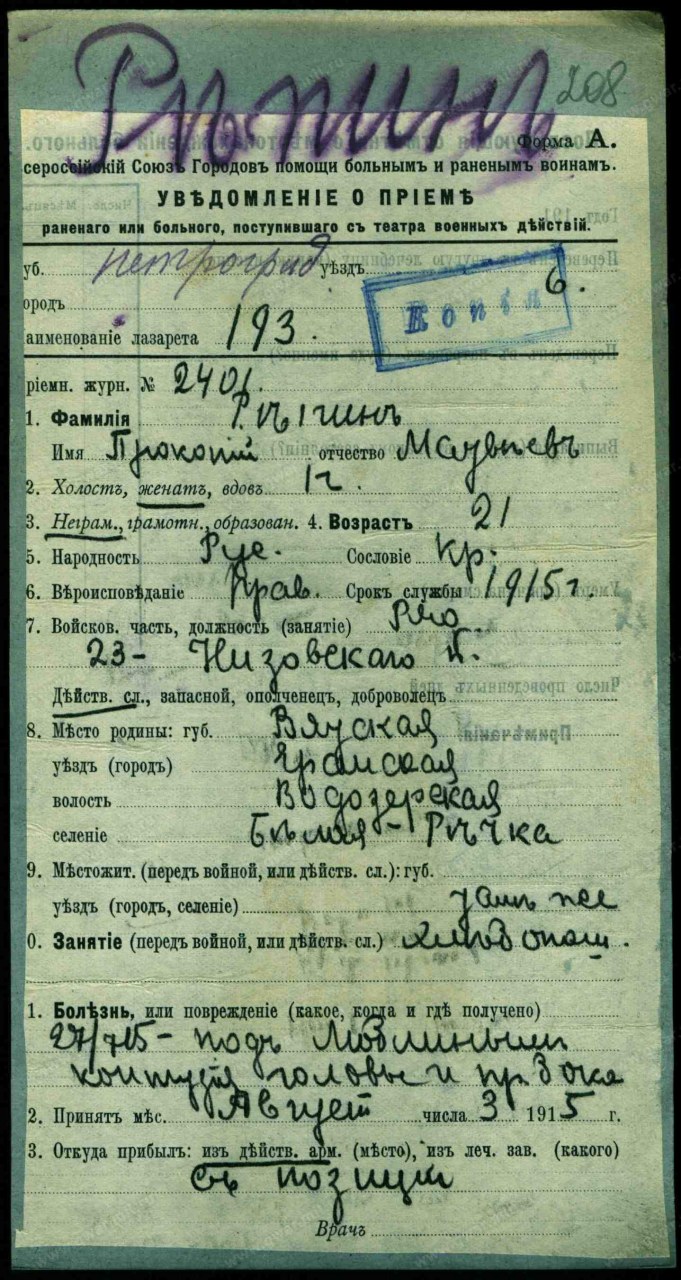 Рѣпинъ 208
Форма А.
сероссійскій Союзъ Городовъ помощи больнымъ и раненымъ воинамъ.
УВѢДОМЛЕНІЕ О ПРІЕМѢ
раненаго или больного, поступившаго съ театра военныхъ дѣйствій.
уб. петроград уѣздъ 6.
ородъ Копія
аименованіе лазарета 193.
ріемн. журн. № 2401.
1. Фамилія
Имя Прокопій отчество Матвѣевъ
2. Холостъ, женатъ, вдовъ 1 г.
3. Неграм., грамотн., образован. 4. Возрастъ 21
5. Народность Рус. Сословіе кр.
6. Вѣроисповѣданіе Прав. Срокъ службы 1915 г.
7. Войсков. часть, должность (занятіе) Ряд.
23 - Низовскаго п.
Дѣйств. сл., запасной, ополченецъ, доброволецъ
8. Мѣсто родины: губ. Вятская
уѣздъ (городъ) Яранская
волость Водозерская
селеніе Бѣлая - Рѣчка
9. Мѣстожит. (передъ войной, или дѣйств. сл.): губ.
уѣздъ (городъ, селеніе) тамъ же
0. Занятіе (передъ войной, или дѣйств. сл.) хлѣбопаш.
1. Болѣзнь, или поврежденіе (какое, когда и гдѣ получено)
27/7 15 - подъ Люблиным
контузія головы и пр. бока
2. Принятъ мѣс. Август числа 3 1915 г.
3. Откуда прибылъ: изъ дѣйств. арм. (мѣсто), изъ леч. зав. (какого)
съ позиціи
Врачъ